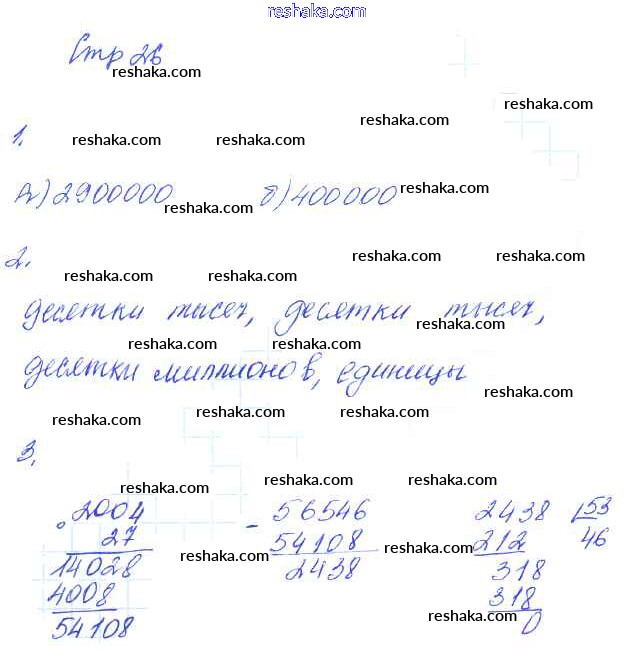 reshaka.com
Стр 26
reshaka.com
reshaka.com
reshaka.com
1.
reshaka.com reshaka.com
reshaka.com
А) 2900000 б) 400000
reshaka.com
reshaka.com reshaka.com
2.
reshaka.com reshaka.com
десятки тисяч, десятки тысяч,
reshaka.com
reshaka.com reshaka.com
десятки миллионов, единицы
reshaka.com
reshaka.com reshaka.com reshaka.com
3.
reshaka.com reshaka.com reshaka.com
2004 - 56546 2438 53
27 54108 212 46
reshaka.com reshaka.com
14028 2438 318
4008 318
reshaka.com
54108 0